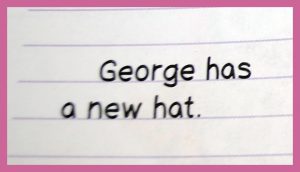 George has
a new hat.